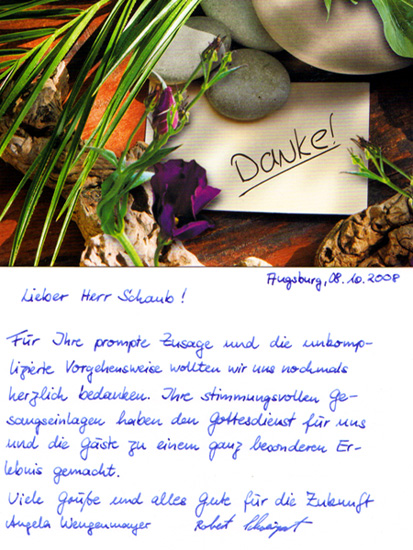 Danke!
Augsburg, 08.10.2008
Lieber Herr Schaub!
Für Ihre prompte Zusage und die unkomp-
lizierte Vorgehensweise wollten wir uns nochmals
herzlich bedanken. Ihre stimmungsvollen Ge-
sangseinlagen haben den Gottesdienst für uns
und die Gäste zu einem ganz besonderen Er-
lebnis gemacht.
Viele Grüße und alles Gute für die Zukunft
Angela Wengenmayer Robert